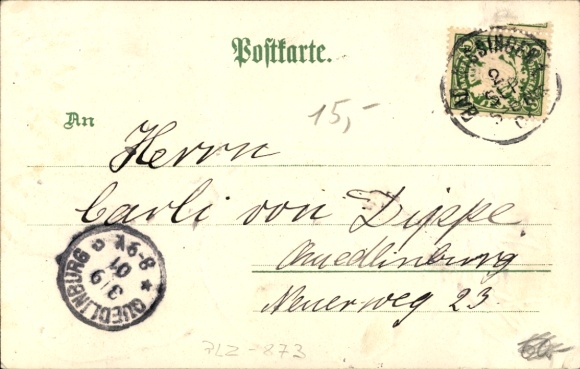 Postkarte.
SSINGEN
15,-
An
Herrn
Carli von Dippe
Quedlinburg
Neuerweg 23.
QUEDLINBURG
3/9
01
6-8
PLZ-873